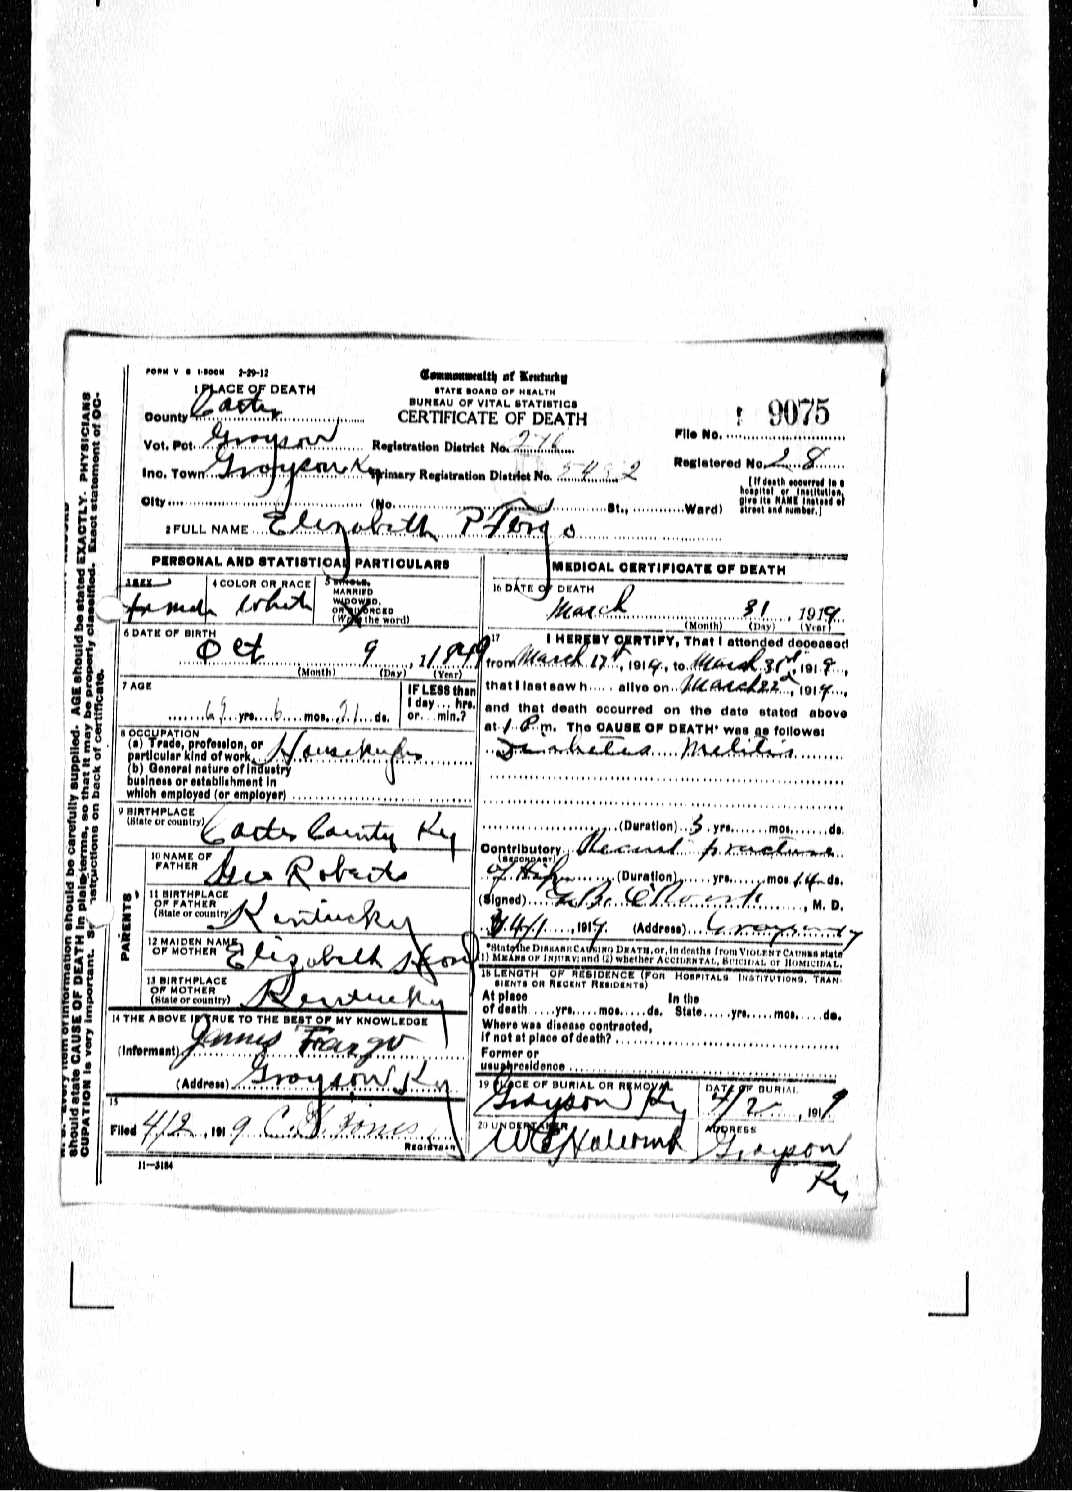 FORM V S 1-500M 2-29-12
Commonwealth of Kentucky
STATE BOARD OF HEALTH
BUREAU OF VITAL STATISTICS
CERTIFICATE OF DEATH
1 PLACE OF DEATH
County Carter
Vot. Pct. Grayson
Registration District No. 276
File No. 9075
Inc. Town Grayson Ky
Primary Registration District No.
Registered No. 28
City (No. St., Ward)
[If death occurred in a hospital or institution, give its NAME instead of street and number.]
2 FULL NAME Elizabeth P Fergo
PERSONAL AND STATISTICAL PARTICULARS
3 SEX
female
4 COLOR OR RACE
White
5 SINGLE,
MARRIED
WIDOWED,
OR DIVORCED
(Write the word)
6 DATE OF BIRTH
Oct 9, 1849
(Month) (Day) (Year)
7 AGE
69 yrs. 6 mos. 21 ds.
IF LESS than
1 day ... hrs.
or ... min.?
8 OCCUPATION
(a) Trade, profession, or
particular kind of work Housekeeper
(b) General nature of industry
business or establishment in
which employed (or employer)
9 BIRTHPLACE
(State or country) Carter County Ky
PARENTS
10 NAME OF
FATHER Geo Roberts
11 BIRTHPLACE
OF FATHER
(State or country) Kentucky
12 MAIDEN NAME
OF MOTHER Elizabeth
13 BIRTHPLACE
OF MOTHER
(State or country) Kentucky
14 THE ABOVE IS TRUE TO THE BEST OF MY KNOWLEDGE
(Informant) James
(Address) Grayson Ky
15
Filed 4/2, 1919 C. Jones
REGISTRAR
11—3184
MEDICAL CERTIFICATE OF DEATH
16 DATE OF DEATH
March 31, 1919
(Month) (Day) (Year)
17 I HEREBY CERTIFY, That I attended deceased
from March 17, 1919, to March 31, 1919,
that I last saw h alive on March 22, 1919,
and that death occurred on the date stated above
at 1 P. m. The CAUSE OF DEATH* was as follows:
Diabetes Melitis
(Duration) 3 yrs. mos. ds.
Contributory fracture
(SECONDARY)
of Hip (Duration) yrs. mos. 14 ds.
(Signed) , M. D.
4/1, 1919 (Address) Grayson Ky
*State the DISEASE CAUSING DEATH, or, in deaths from VIOLENT CAUSES state
(1) MEANS OF INJURY; and (2) whether ACCIDENTAL, SUICIDAL or HOMICIDAL.
18 LENGTH OF RESIDENCE (FOR HOSPITALS, INSTITUTIONS, TRAN-
SIENTS OR RECENT RESIDENTS)
At place In the
of death yrs. mos. ds. State yrs. mos. ds.
Where was disease contracted,
if not at place of death?
Former or
usual residence
19 PLACE OF BURIAL OR REMOVAL
Grayson Ky
DATE OF BURIAL
4/2, 1919
20 UNDERTAKER
ADDRESS
Grayson
Ky
should state CAUSE OF DEATH in plain terms, so that it may be properly classified. Exact statement of OC-
CUPATION is very important.